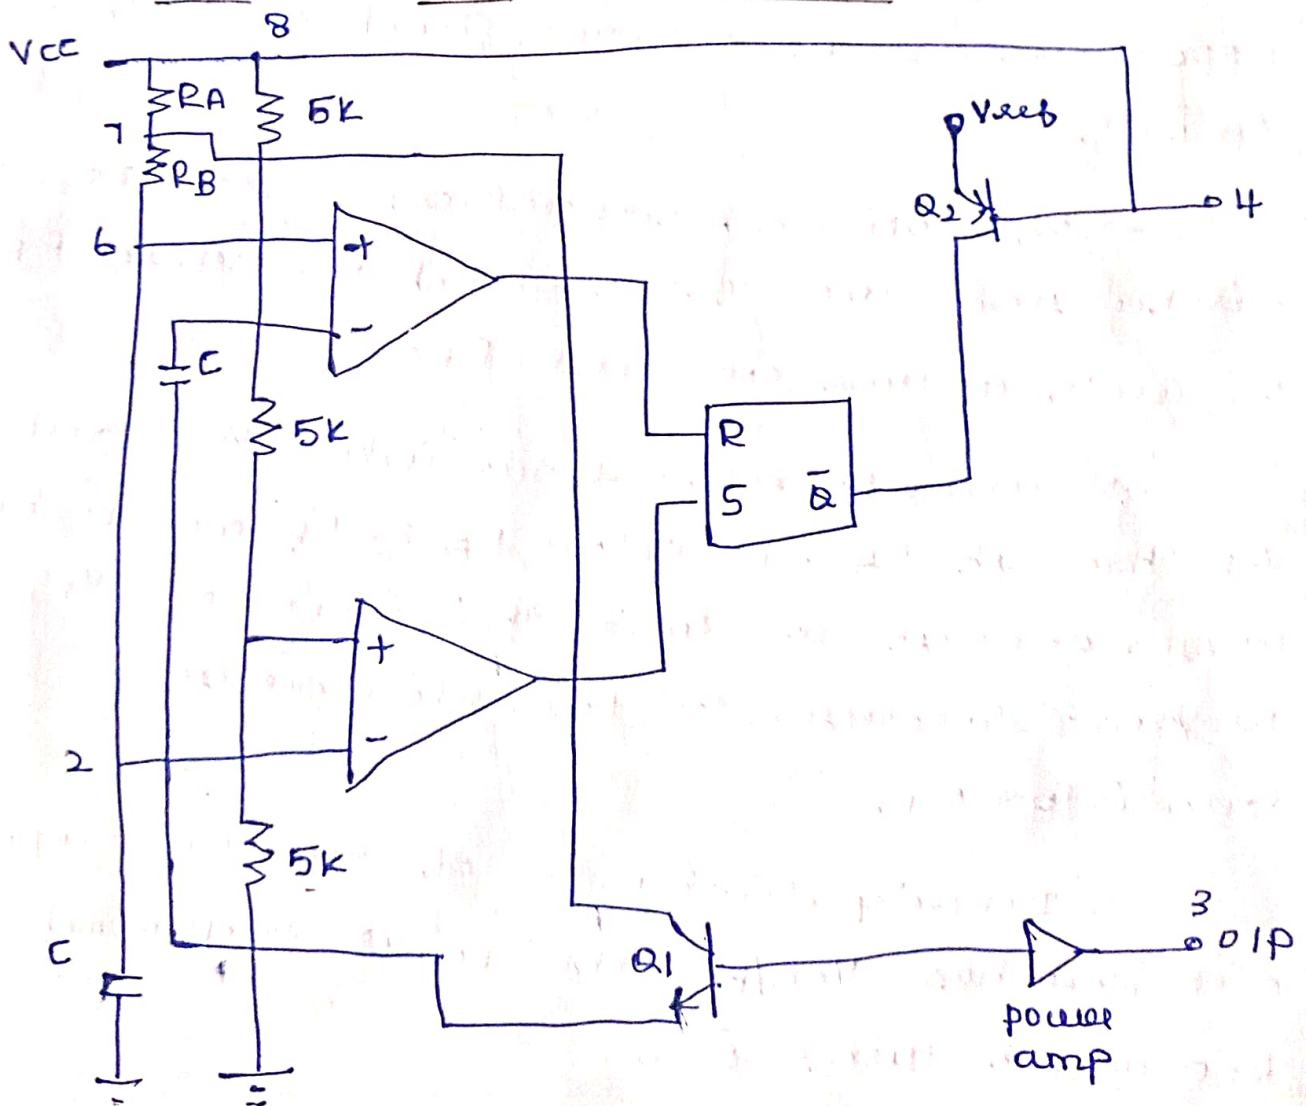 8
VCC
RA
5K
7
RB
Vref
Q2
4
6
+
-
C
5K
R
S
Q̅
+
-
2
5K
3
C
Q1
O/P
power
amp